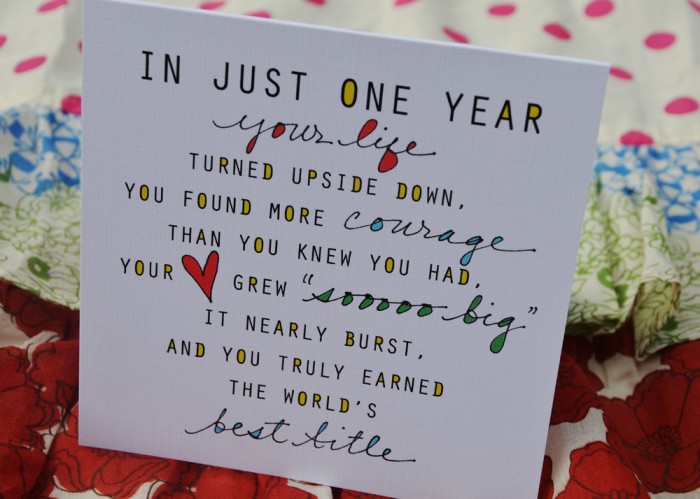 IN JUST ONE YEAR
your life
TURNED UPSIDE DOWN,
YOU FOUND MORE courage
THAN YOU KNEW YOU HAD,
YOUR GREW "sooooo big"
IT NEARLY BURST,
AND YOU TRULY EARNED
THE WORLD'S
best title